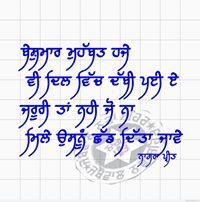 ਬੇਸ਼ੁਮਾਰ ਮੁਹੱਬਤ ਹਜੇ
ਵੀ ਦਿਲ ਵਿੱਚ ਦੱਬੀ ਪਈ ਏ
ਜਰੂਰੀ ਤਾਂ ਨਹੀ ਜੋ ਨਾ
ਮਿਲੇ ਉਸਨੂੰ ਛੱਡ ਦਿੱਤਾ ਜਾਵੇ
ਨਾਗਰਾ ਪ੍ਰੀਤ